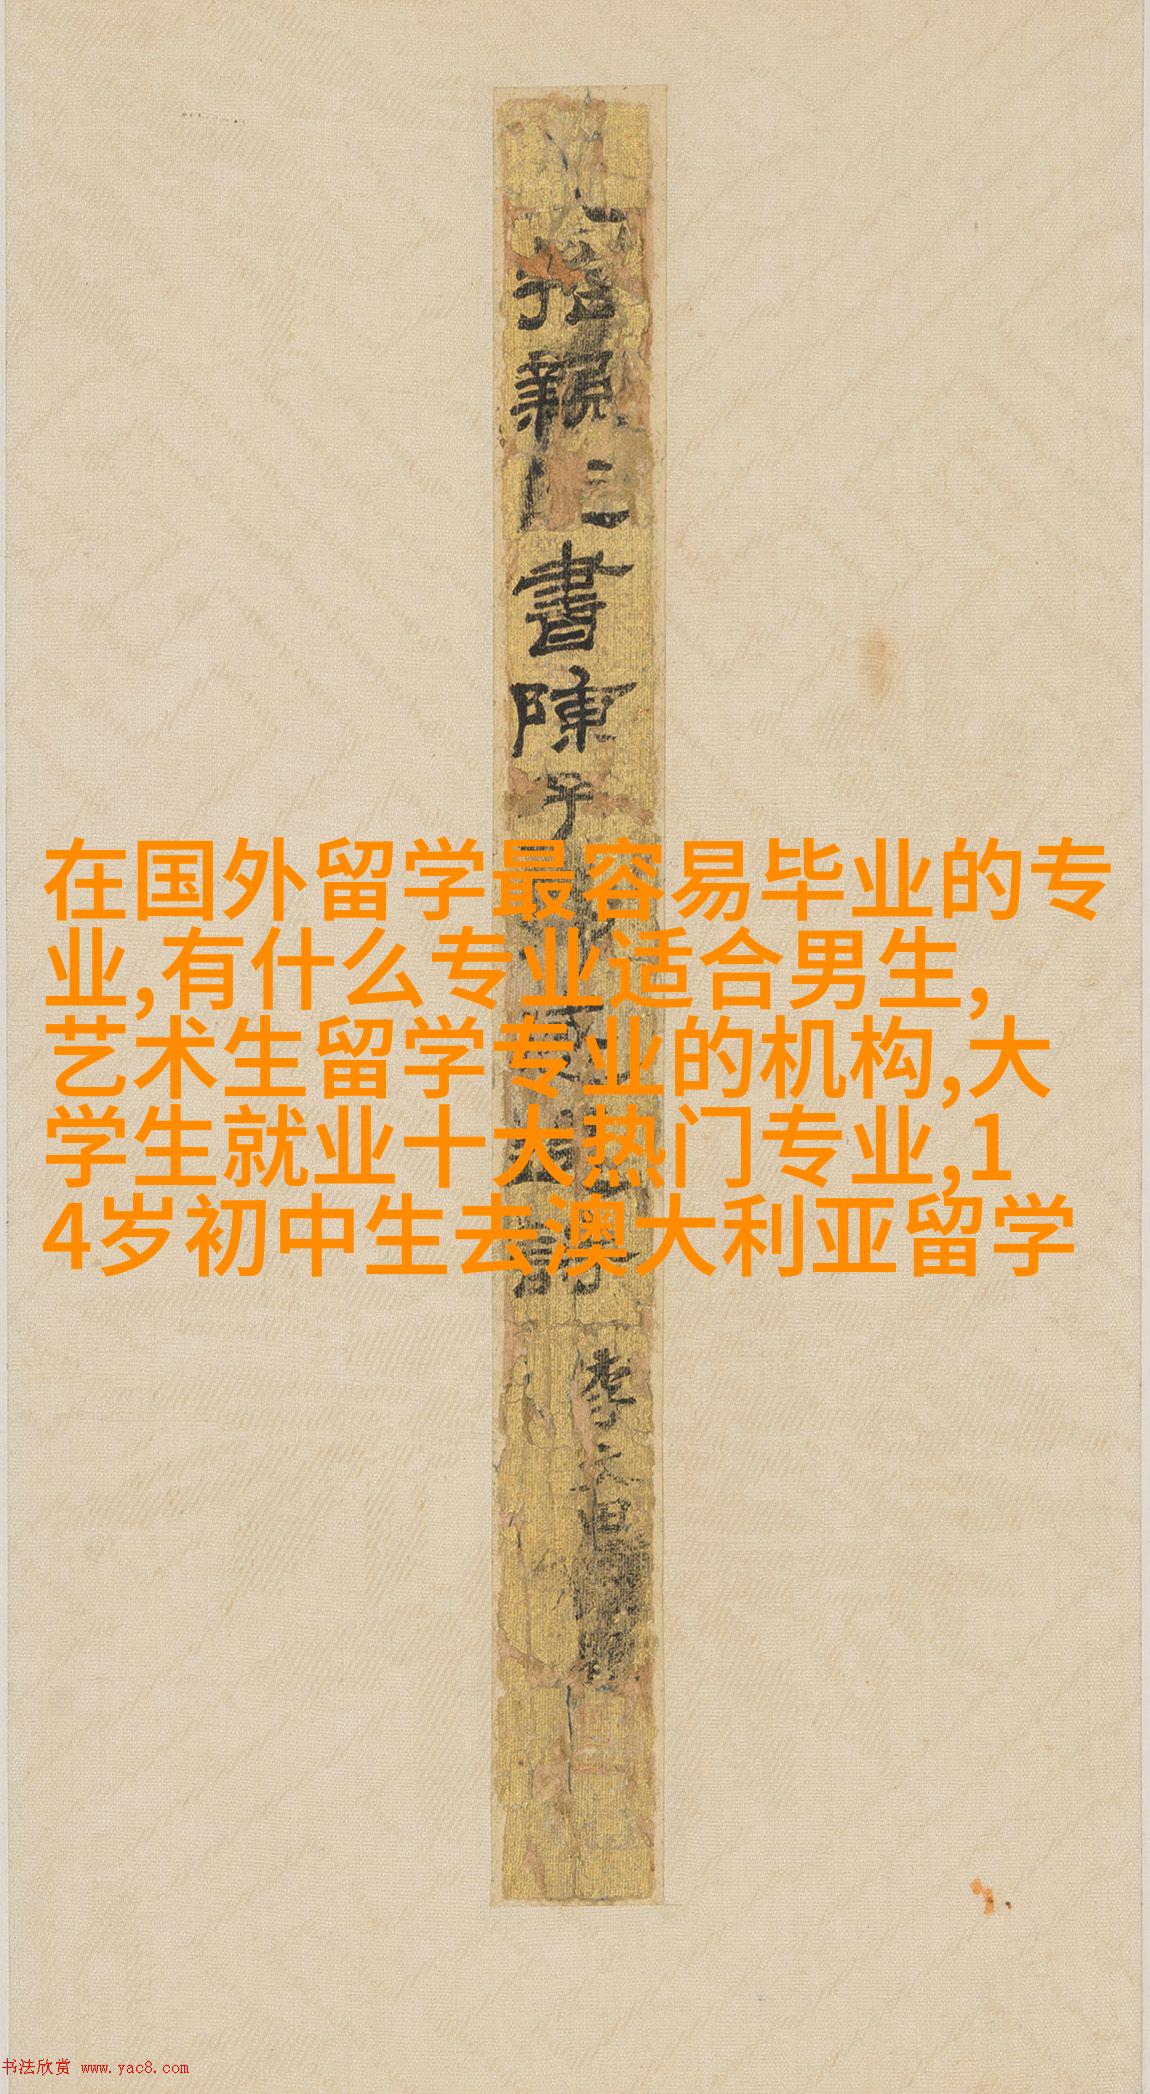 書陳子
李文田
在国外留学最容易毕业的专
业,有什么专业适合男生,
艺术生留学专业的机构,大
学生就业十大热门专业,1
4岁初中生去澳大利亚留学
书法欣赏 www.yac8.com